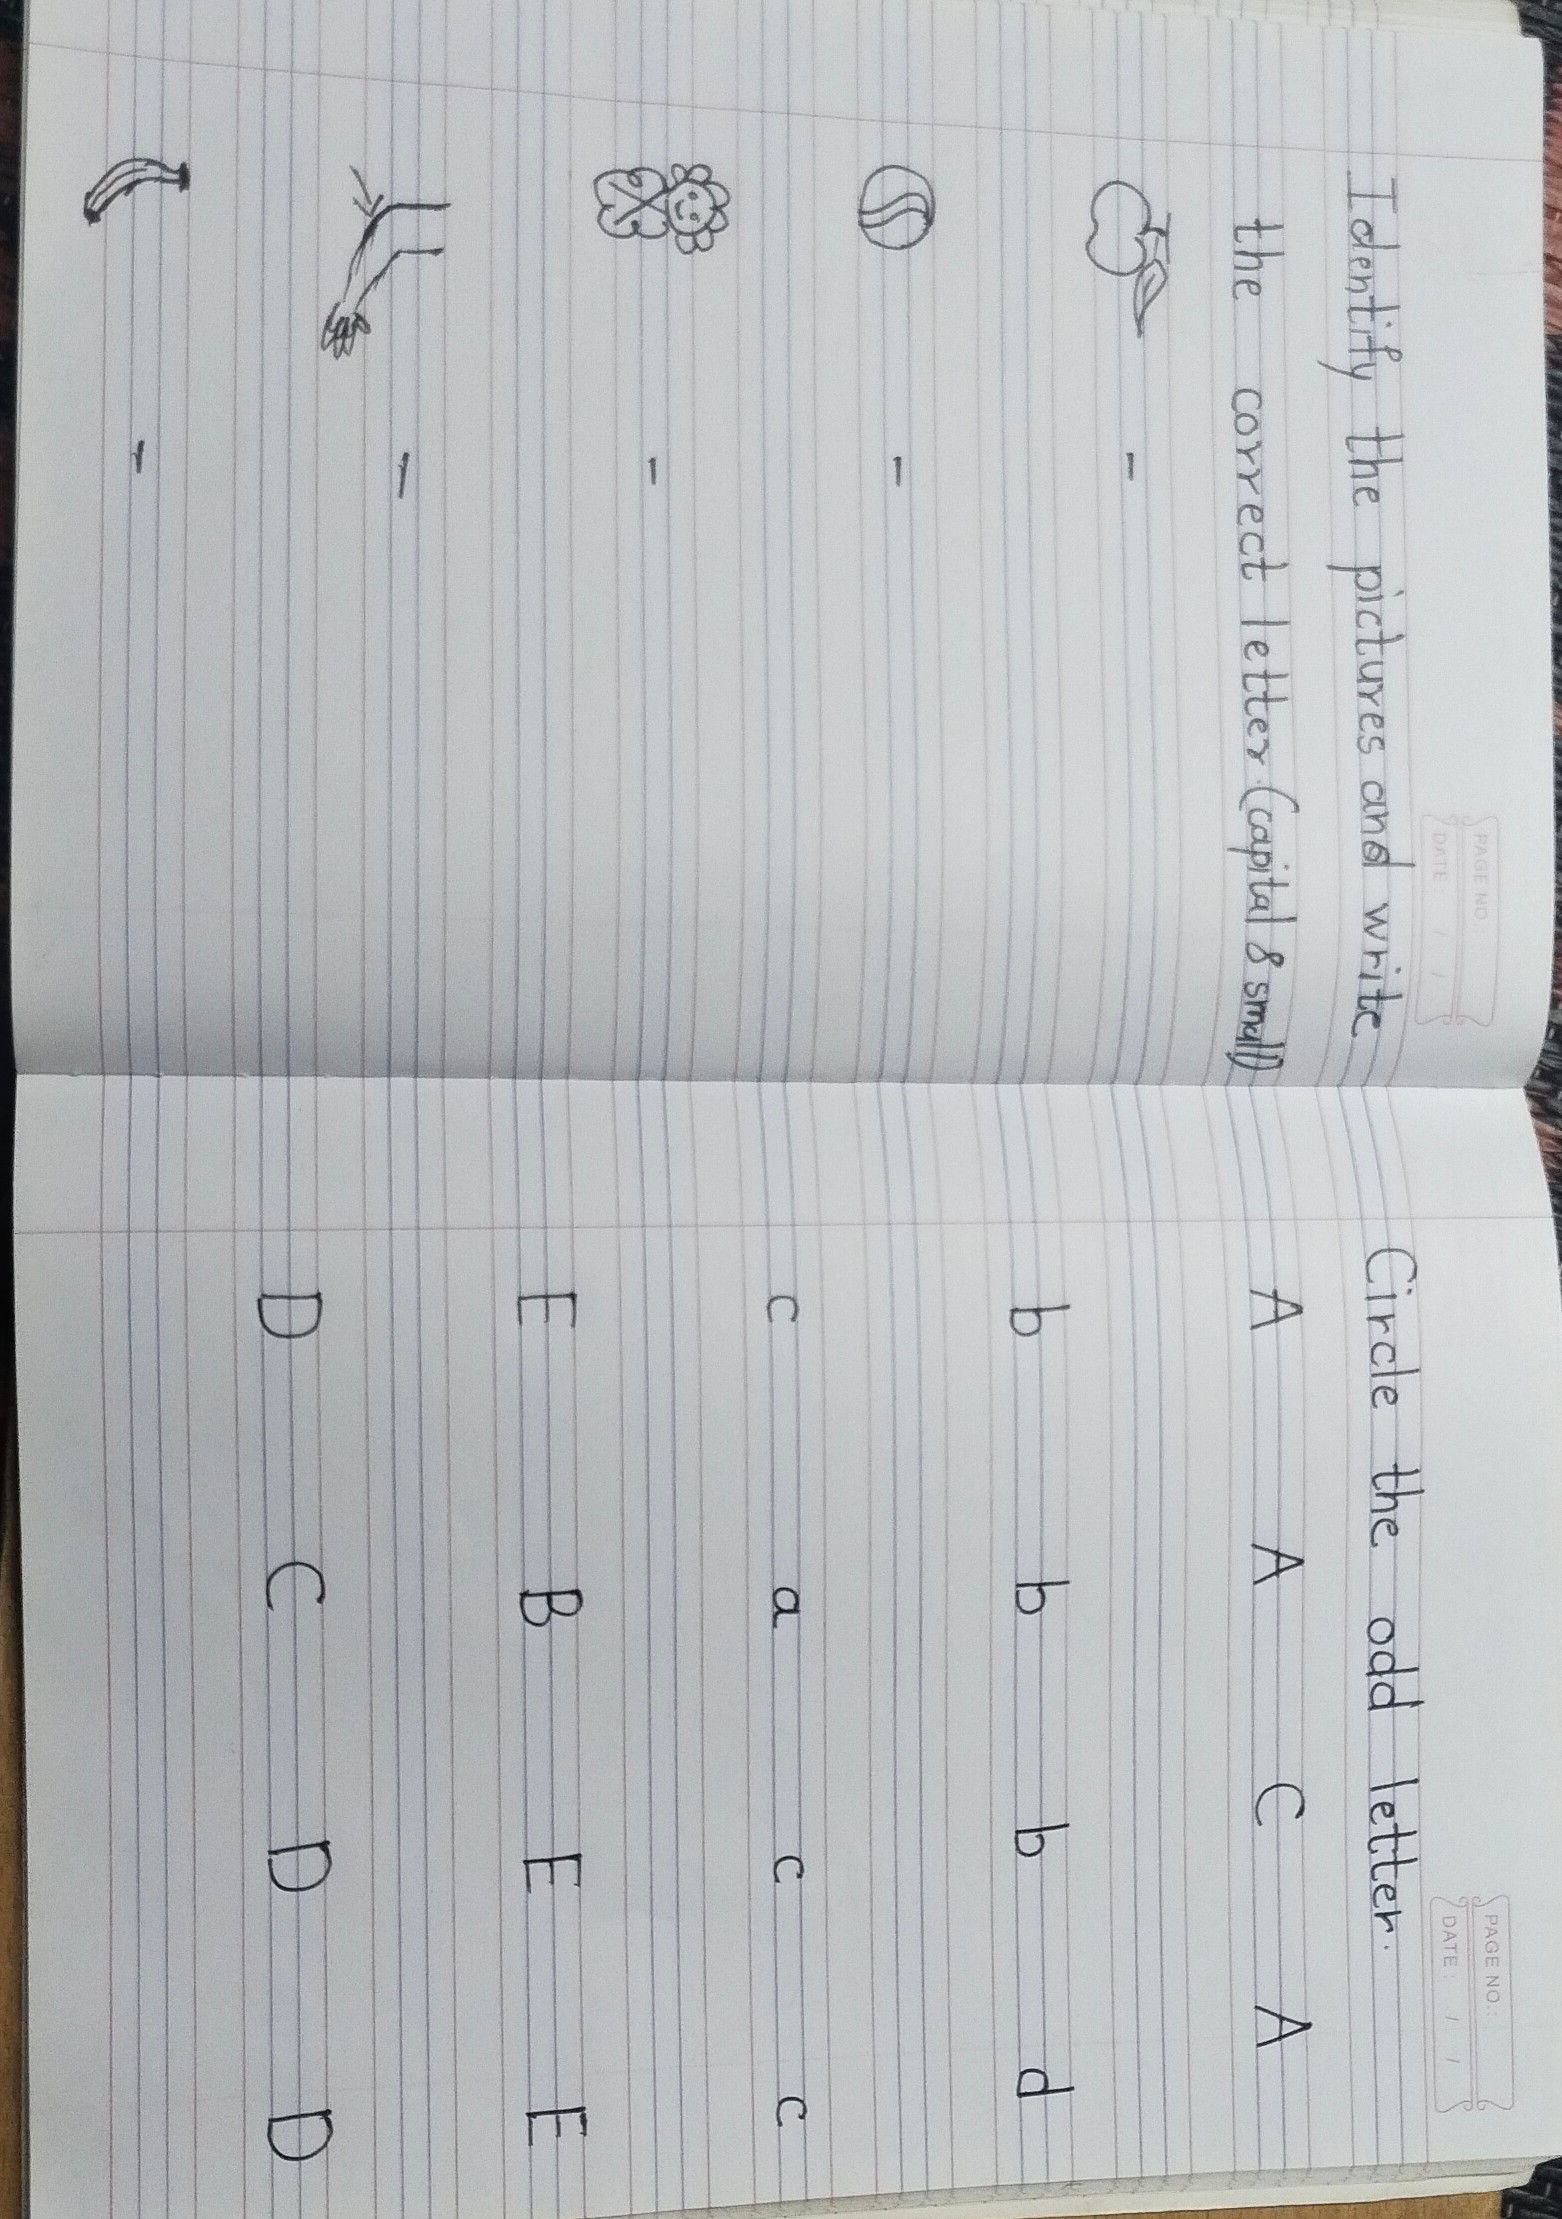 PAGE NO.
DATE / /
Identify the pictures and write
the correct letter (capital & small)
-
-
-
-
-
PAGE NO.:
DATE: / /
Circle the odd letter.
A A C A
b b b d
c a c c
E B E E
D C D D